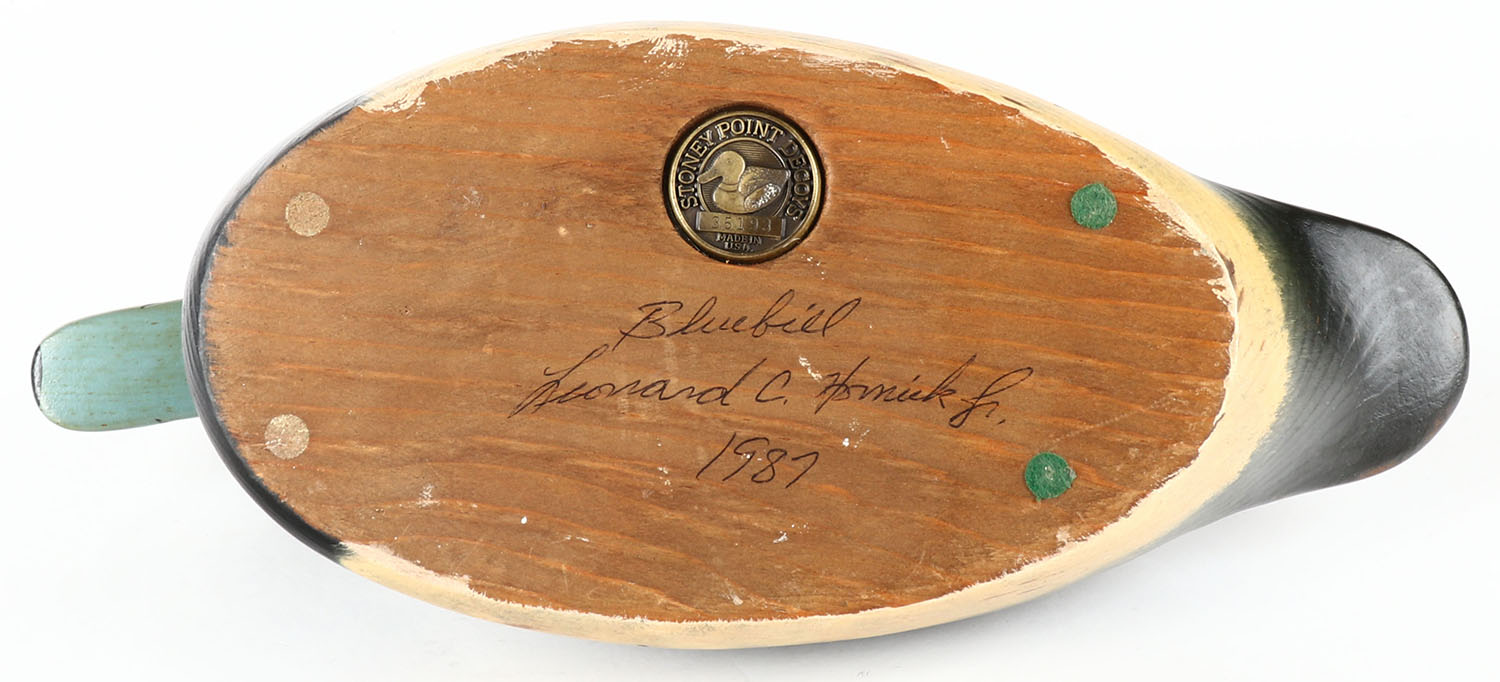 STONEY POINT DECOYS
35193
MADE IN
U.S.A.
Bluebill
Leonard C. Homick Jr.
1987